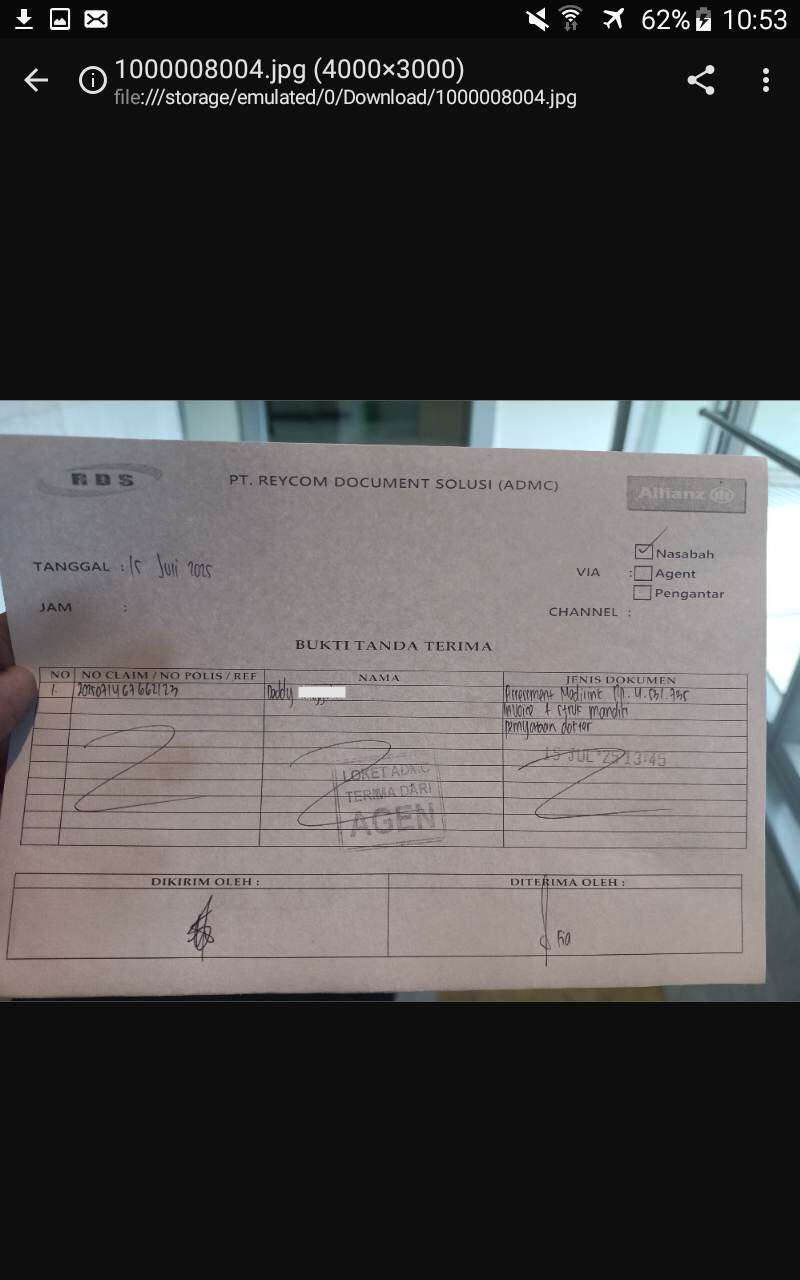 62% 10:53
1000008004.jpg (4000×3000)
file:///storage/emulated/0/Download/1000008004.jpg
RDS
PT. REYCOM DOCUMENT SOLUSI (ADMC)
Allianz
TANGGAL : 15 Juli 2025
JAM :
VIA :
Nasabah
Agent
Pengantar
CHANNEL :
BUKTI TANDA TERIMA
NO NO CLAIM / NO POLIS / REF NAMA JENIS DOKUMEN
1. Daddy
Invoice + struk mandiri
dokter
15 JUL '25 13:45
LOKET ADMC
TERIMA DARI
AGEN
DIKIRIM OLEH : DITERIMA OLEH :
Fia